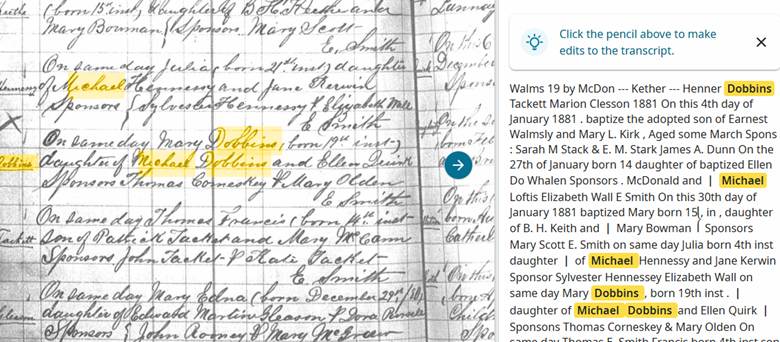 (born 15th inst) daughter of B. H. Keith and
Mary Bowman } Sponsor. Mary Scott
E. Smith
On same day Julia (born 21st inst) daughter
of Michael Hennessy and Jane Kerwin
Sponsors } Sylvester Hennessy & Elizabeth Wall
E Smith
On same day Mary Dobbins, (born 19th inst)
Dobbins daughter of Michael Dobbins and Ellen Quirk
Sponsors Thomas Comeskey & Mary Olden
E Smith
On same day Thomas Francis (born 14th inst
Tackett son of Patrick Tacket and Mary McCann
Sponsors John Tacket & Kate Tacket
E. Smith
On same day Mary Edna (born December 29th/80)
Gleason daughter of Edward Martin Gleason & Dora
Sponsors } John Rooney & Mary McGraw
On this
December
Sponso
On this
born
On this
Click the pencil above to make
edits to the transcript.
Walms 19 by McDon --- Kether --- Henner Dobbins
Tackett Marion Clesson 1881 On this 4th day of
January 1881 . baptize the adopted son of Earnest
Walmsly and Mary L. Kirk , Aged some March Spons
: Sarah M Stack & E. M. Stark James A. Dunn On the
27th of January born 14 daughter of baptized Ellen
Do Whalen Sponsors . McDonald and | Michael
Loftis Elizabeth Wall E Smith On this 30th day of
January 1881 baptized Mary born 15, in , daughter
of B. H. Keith and | Mary Bowman | Sponsors
Mary Scott E. Smith on same day Julia born 4th inst
daughter | of Michael Hennessy and Jane Kerwin
Sponsor Sylvester Hennessey Elizabeth Wall on
same day Mary Dobbins , born 19th inst . |
daughter of Michael Dobbins and Ellen Quirk |
Sponsors Thomas Corneskey & Mary Olden On
same day Thomas E. Smith Francis born 4th inst son